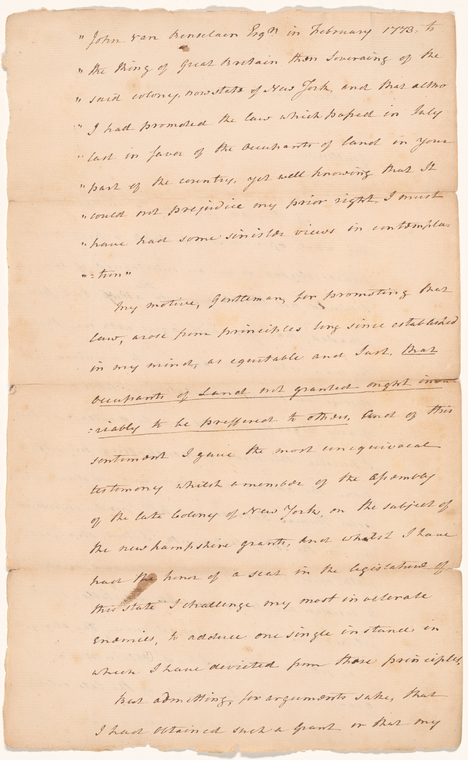 " John van Renselair Esqr. in February 1773. to
" the King of Great Britain then Sovereing of the
" said colony, now state of New York, and that altho
" I had promoted the law which passed in July
" last in favor of the Occupants of land in your
" part of the country, yet well knowing that It
" could not prejudice my prior right I must
" have had some sinister views in contempla
" -tion"
My motive, Gentleman, for promoting that
law, arose from principles long since established
in my mind, as equitable and Just, that
Occupants of Land not granted ought inva
-riably to be preffered to others, And of this
sentiment I gave the most unequivocal
testimony whilst a member of the Assembly
of the late Colony of New York, on the subject of
the newhampshire grants, and whilst I have
had the honor of a seat in the legislature of
this state I challenge my most inveterate
Enemies, to adduce one single instance in
which I have deviated from those principles,
but admitting, for arguments sake, that
I had obtained such a Grant or that my